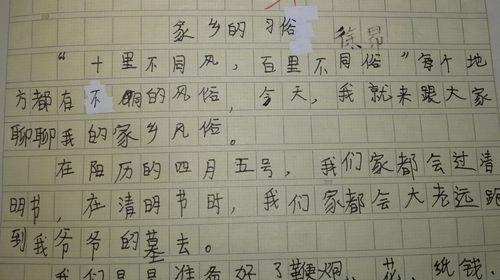 家乡的习俗
徐昂
“十里不同风，百里不同俗”每个地
方都有不同的风俗，今天，我就来跟大家
聊聊我的家乡风俗。
在阳历的四月五号，我们家都会过清
明节，在清明节时，我们家都会大老远跑
到我爷爷的墓去。
我们早早准备好了鞭炮、花、纸钱、